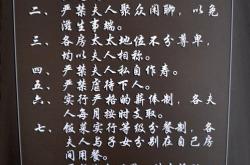 一、严禁夫人聚众闲聊，以免
滋生事端。
三、各房太太地位不分尊卑，
均以夫人相称。
四、严禁夫人私自作寿。
五、严禁虐待下人。
六、实行严格的薪俸制，各夫
人每月按时支取。
七、饭菜实行等级分餐制，各
夫人与子女分别在自己房
间用餐。